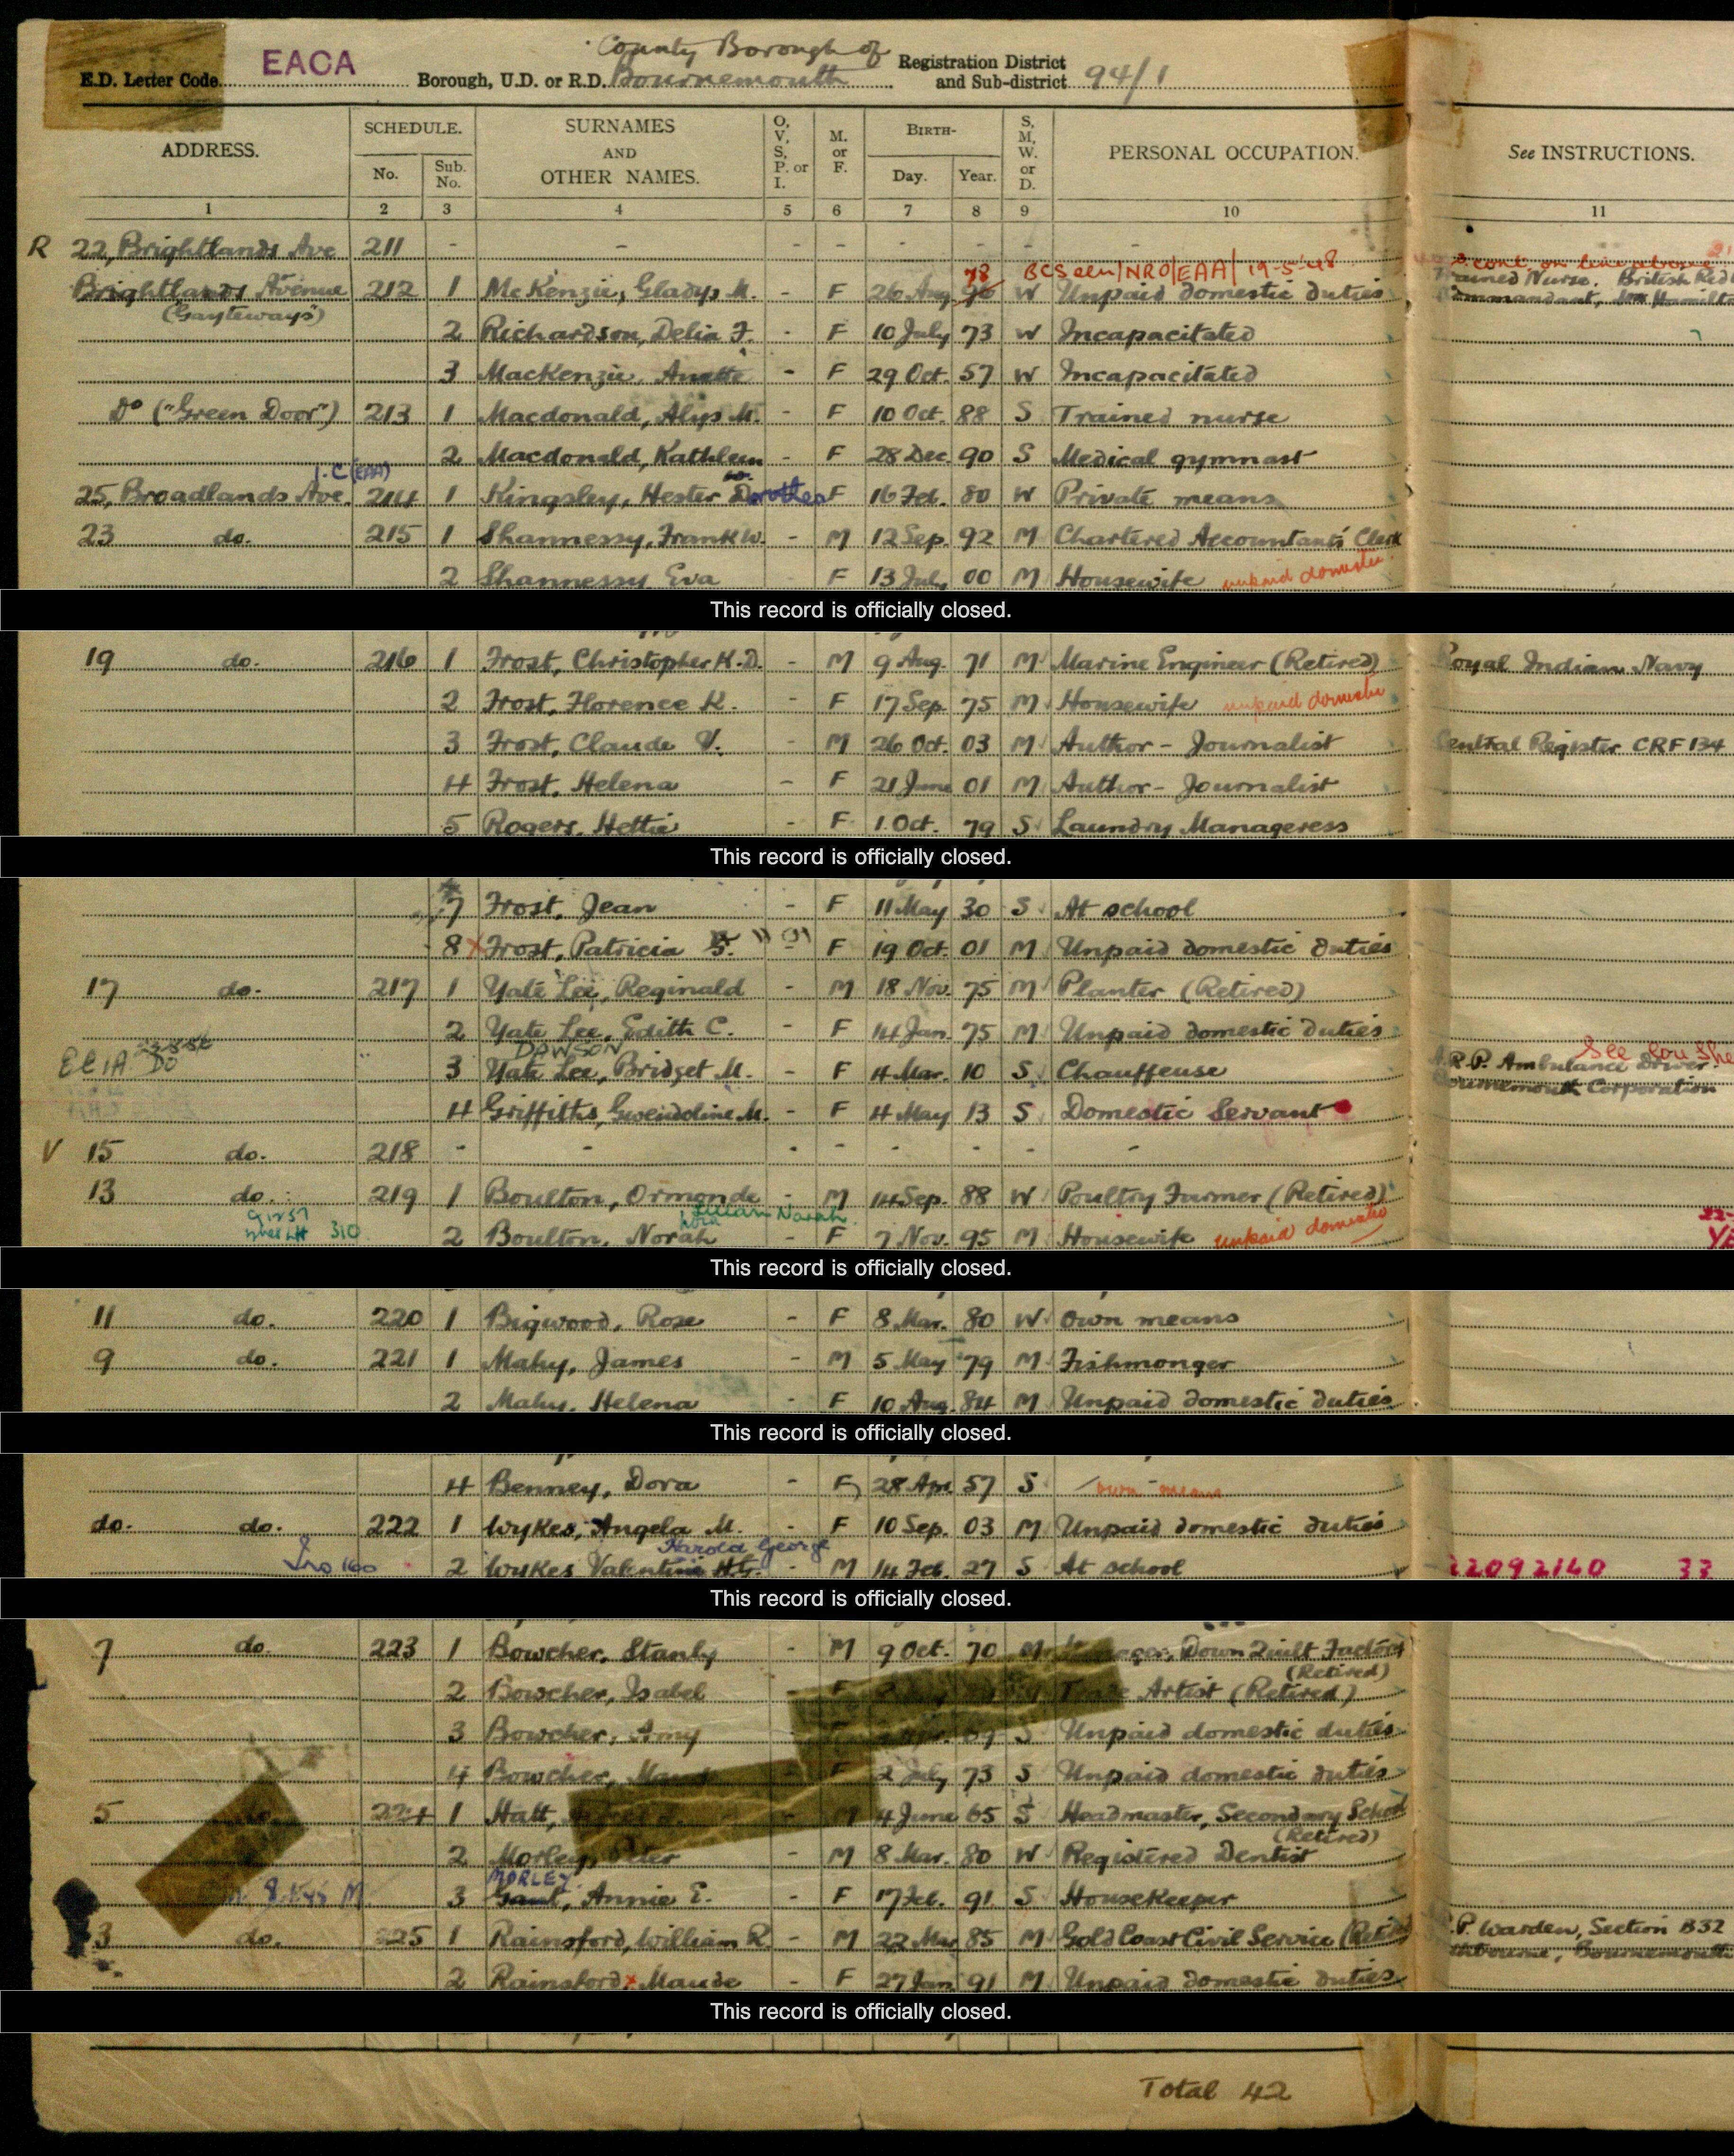 County Borough of
E.D. Letter Code EACA Borough, U.D. or R.D. Bournemouth Registration District and Sub-district 94/1
ADDRESS. SCHEDULE. No. Sub. No. SURNAMES AND OTHER NAMES. O, V, S, P. or I. M. or F. BIRTH- Day. Year. S, M, W. or D. PERSONAL OCCUPATION. See INSTRUCTIONS.
1 2 3 4 5 6 7 8 9 10 11
R 22, Brightlands Ave 211 - - - - - - - -
78 BCS seen/NRO/EAA/ 19-5-48 cont. on line above
Brightlands Avenue 212 1 McKenzie, Gladys M. - F 26 Aug 96 W Unpaid domestic duties Trained Nurse. British Red
("Gayteways") Commandant, Hamilto
2 Richardson, Delia F. - F 10 July 73 W Incapacitated
3 MacKenzie, Anette - F 29 Oct. 57 W Incapacitated
Do ("Green Door") 213 1 Macdonald, Alys M. - F 10 Oct. 88 S Trained nurse
2 Macdonald, Kathleen - F 28 Dec. 90 S Medical gymnast
1.C (EAA)
25, Broadlands Ave. 214 1 Kingsley, Hester Dorothea F 16 Feb. 80 W Private means
23 do. 215 1 Shannessy, Frank W. - M 12 Sep. 92 M Chartered Accountants' Clerk
2 Shannessy Eva F 13 July 00 M Housewife unpaid domestic
This record is officially closed.
19 do. 216 1 Frost, Christopher K.D. - M 9 Aug. 71 M Marine Engineer (Retired) Royal Indian Navy
2 Frost, Florence K. - F 17 Sep. 75 M Housewife unpaid domestic
3 Frost, Claude V. - M 26 Oct. 03 M Author - Journalist Central Register CRF 134
4 Frost, Helena - F 21 June 01 M Author - Journalist
5 Rogers, Hettie - F 1 Oct. 79 S Laundry Manageress
This record is officially closed.
7 Frost, Jean - F 11 May 30 S At school
8 x Frost, Patricia - F 19 Oct 01 M Unpaid domestic duties
17 do. 217 1 Yate Lee, Reginald - M 18 Nov. 75 M Planter (Retired)
2 Yate Lee, Edith C. - F 14 Jan. 75 M Unpaid domestic duties
DAWSON See
EEIA DO 3 Yate Lee, Bridget M. - F 4 Mar. 10 S Chauffeuse A.R.P. Ambulance Driver.
Bournemouth Corporation
4 Griffiths, Gwendoline M. - F 4 May 13 S Domestic Servant
V 15 do. 218 - - - - - - - -
13 do. 219 1 Boulton, Ormonde - M 14 Sep. 88 W Poultry Farmer (Retired)
310 Lilian Norah
2 Boulton, Norah - F 7 Nov. 95 M Housewife unpaid domestic
This record is officially closed.
11 do. 220 1 Bigwood, Rose - F 8 Mar. 80 W Own means
9 do. 221 1 Mahy, James - M 5 May 79 M Fishmonger
2 Mahy, Helena - F 10 Aug. 84 M Unpaid domestic duties
This record is officially closed.
4 Benney, Dora - F 28 Apr. 57 S own means
do. do. 222 1 Wykes, Angela M. - F 10 Sep. 03 M Unpaid domestic duties
Harold George
160 2 Wykes Valentine H.G. - M 14 Feb. 27 S At school 22092140 33
This record is officially closed.
7 do. 223 1 Bowcher, Stanly - M 9 Oct. 70 M Down Quilt Factory
(Retired)
2 Bowcher, Isabel Artist (Retired)
3 Bowcher, Amy 69 S Unpaid domestic duties
4 Bowcher, Maud - F 2 July 73 S Unpaid domestic duties
5 224 1 Hatt, M 4 June 65 S Headmaster, Secondary School
(Retired)
2 Morley, Peter - M 8 Mar. 80 W Registered Dentist
MORLEY
3 Gant, Annie E. - F 17 Feb. 91 S Housekeeper
3 do. 225 1 Rainsford, William R. - M 22 Mar 85 M Gold Coast Civil Service (Retired) A.R.P. Warden, Section B32
Bournemouth
2 Rainsford x Maude - F 27 Jan 91 M Unpaid domestic duties
This record is officially closed.
Total 42